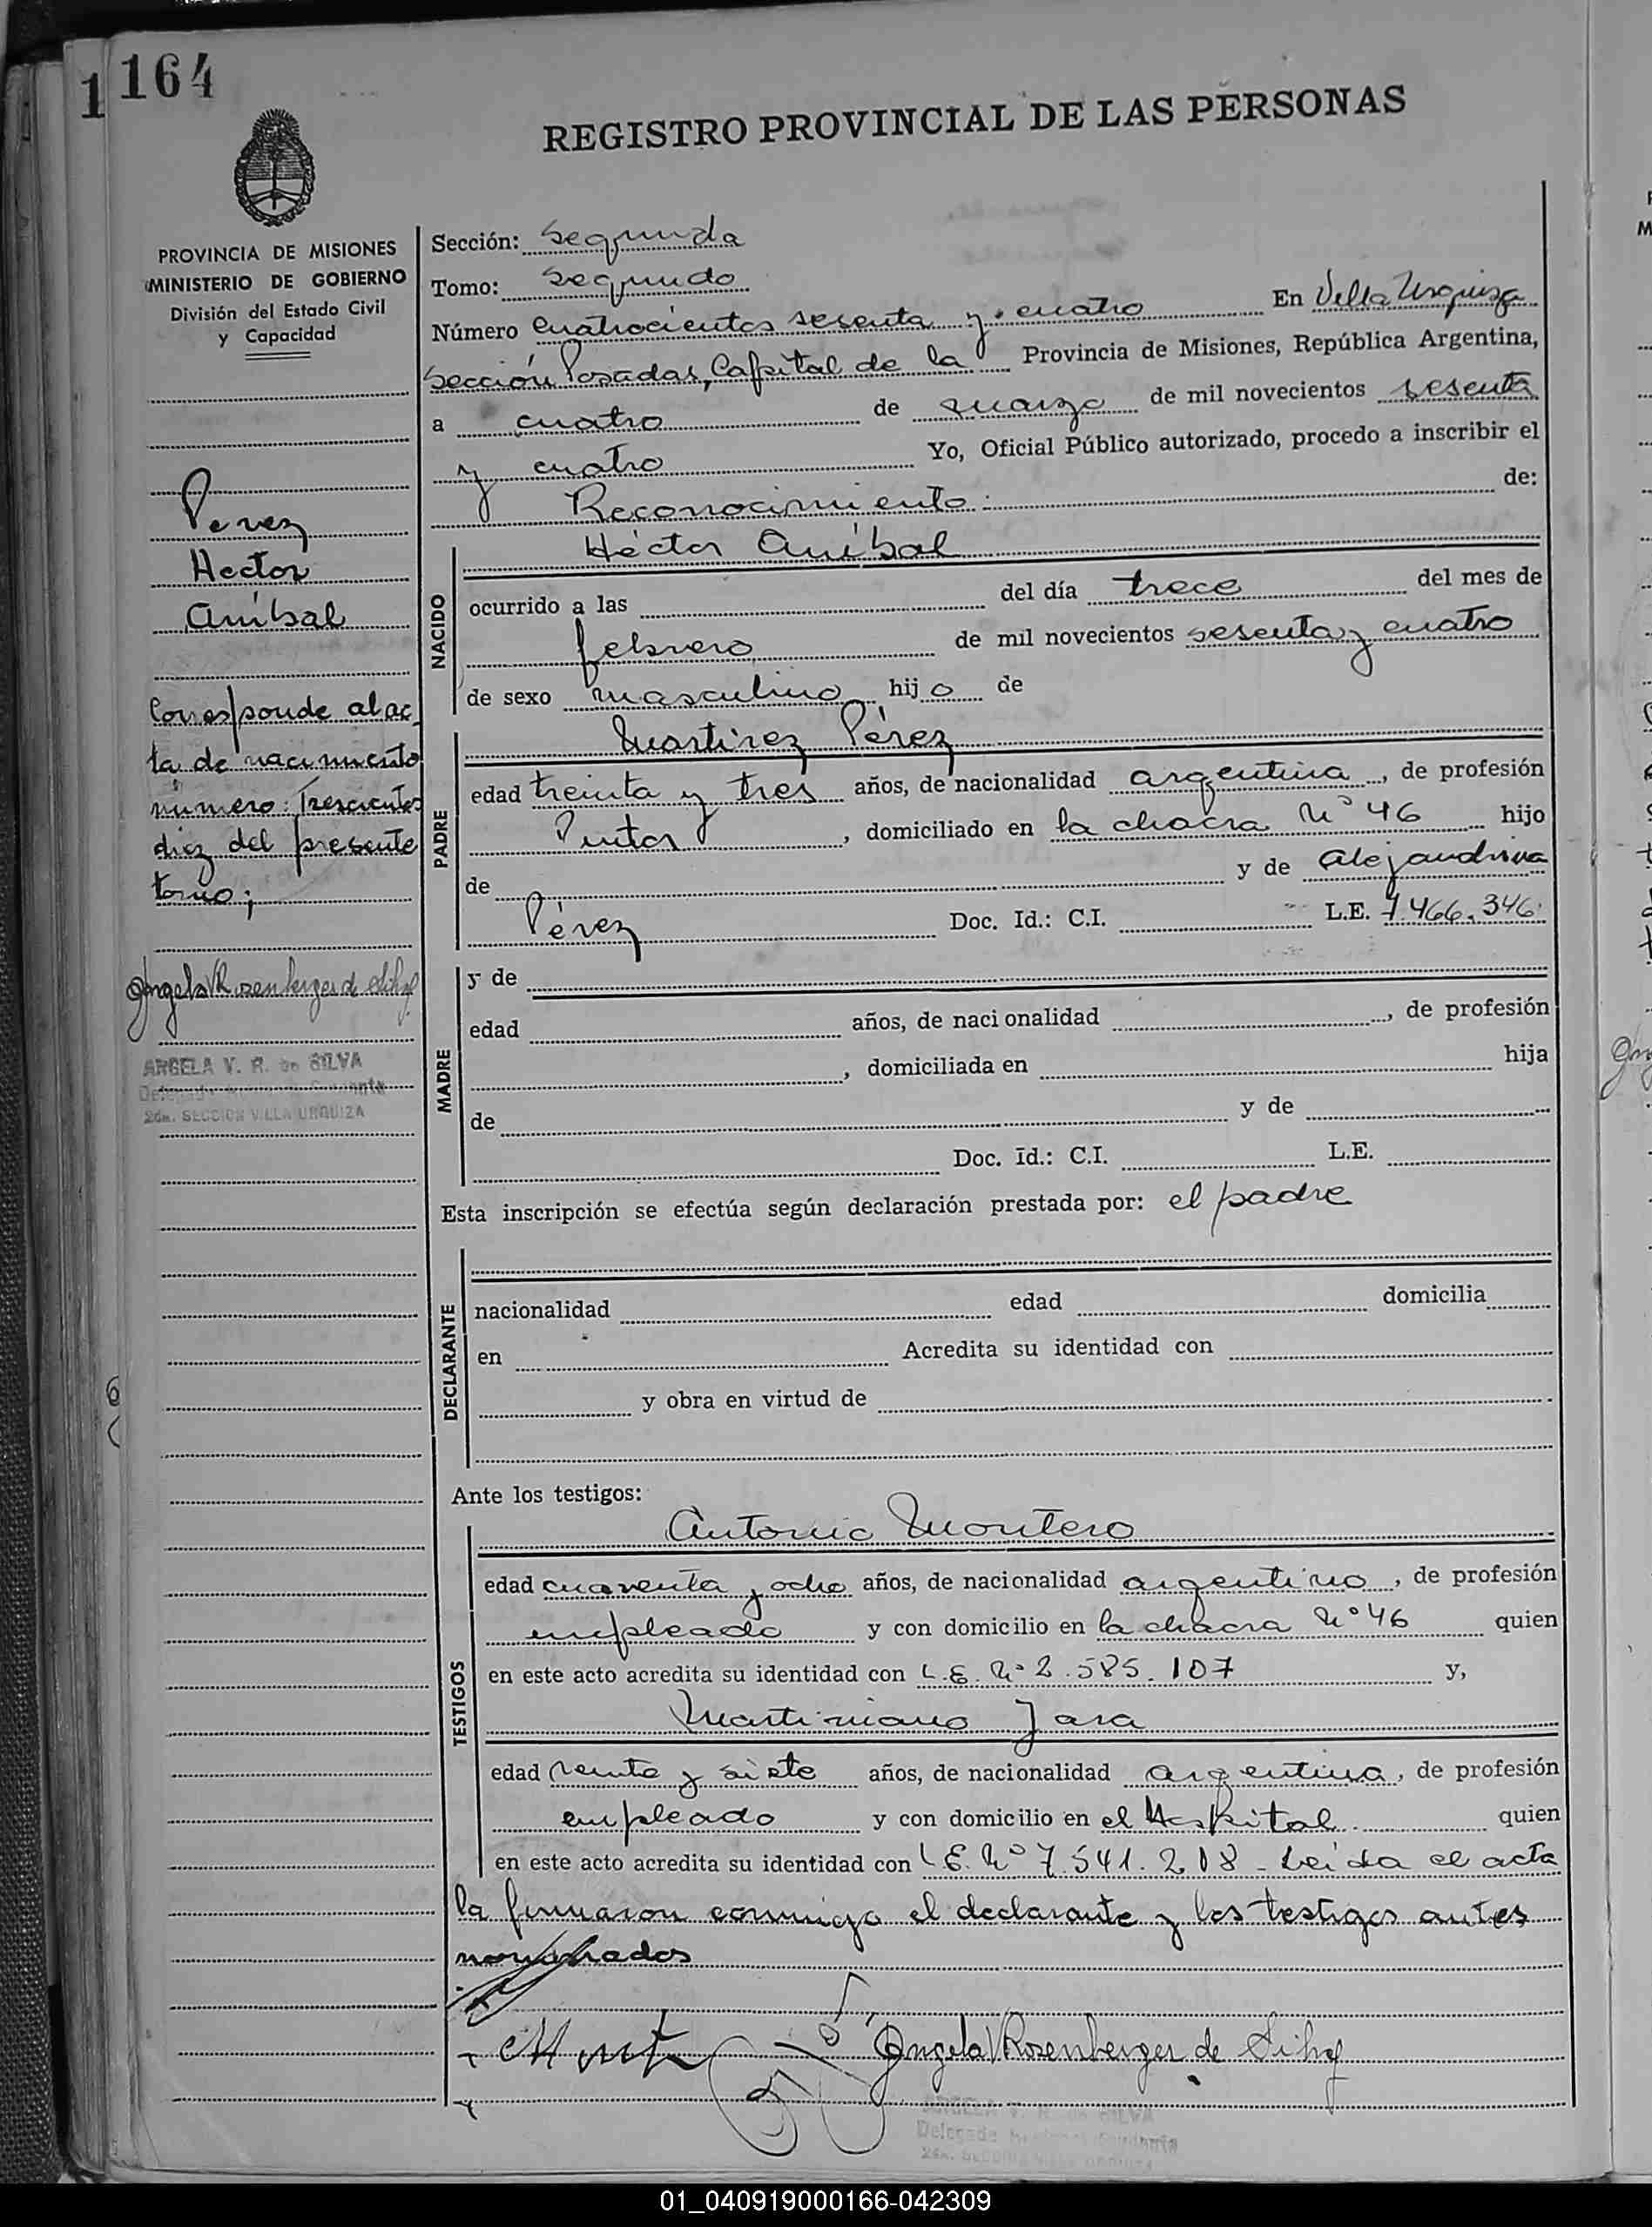 1 164
REGISTRO PROVINCIAL DE LAS PERSONAS
PROVINCIA DE MISIONES
MINISTERIO DE GOBIERNO
División del Estado Civil
y Capacidad
Perez
Hector
Aníbal
Corresponde al ac
ta de nacimiento
número: Trescientos
diez del presente
tomo;
Angela V Rosenberger de Silva
ARGELA V. R. de SILVA
2da. SECCION VILLA URQUIZA
Sección: Segunda
Tomo: Segundo
Número Cuatrocientos sesenta y cuatro En Villa Urquiza
Sección Posadas, Capital de la Provincia de Misiones, República Argentina,
a cuatro de marzo de mil novecientos sesenta
y cuatro Yo, Oficial Público autorizado, procedo a inscribir el
Reconocimiento de:
NACIDO
Héctor Aníbal
ocurrido a las del día trece del mes de
febrero de mil novecientos sesenta y cuatro
de sexo masculino hijo de
PADRE
Martirez Pérez
edad treinta y tres años, de nacionalidad argentina, de profesión
Pintor, domiciliado en la chacra Nº 46 hijo
de y de Alejandrina
Pérez Doc. Id.: C.I. L.E. 7.466.346
MADRE
y de
edad años, de nacionalidad , de profesión
, domiciliada en hija
de y de
Doc. Id.: C.I. L.E.
Esta inscripción se efectúa según declaración prestada por: el padre
DECLARANTE
nacionalidad edad domicilia
en Acredita su identidad con
y obra en virtud de
Ante los testigos:
TESTIGOS
Antonio Montero
edad cuarenta y ocho años, de nacionalidad argentino, de profesión
empleado y con domicilio en la chacra Nº 46 quien
en este acto acredita su identidad con L.E. Nº 2.585.107 y,
Martiniano Jara
edad veinte y siete años, de nacionalidad argentina, de profesión
empleado y con domicilio en el Hospital quien
en este acto acredita su identidad con L.E. Nº 7.541.218 - Leída el acta
la firmaron conmigo el declarante y los testigos antes
nombrados
Angela V Rosenberger de Silva
01_040919000166-042309